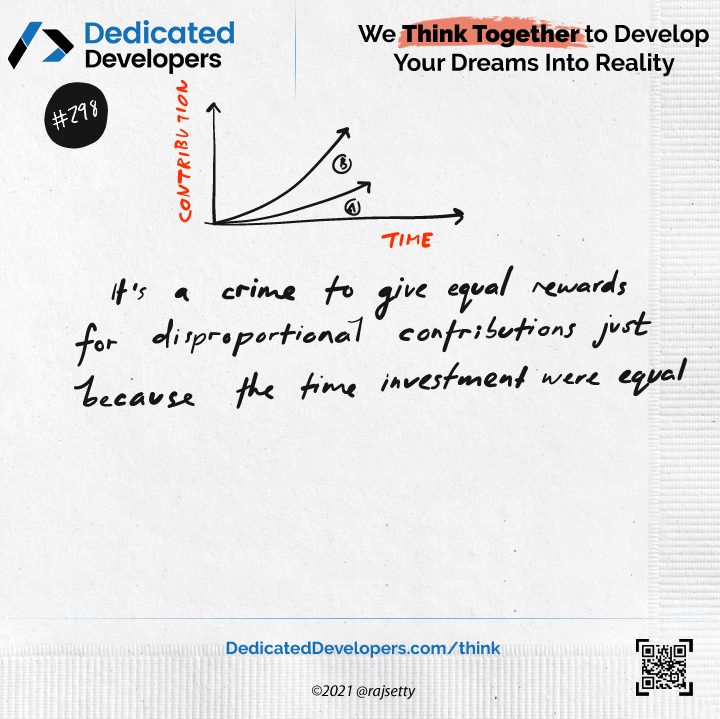 Dedicated
Developers
We Think Together to Develop
Your Dreams Into Reality
#298
CONTRIBUTION
B
A
TIME
It's a crime to give equal rewards
for disproportional contributions just
because the time investment were equal
DedicatedDevelopers.com/think
©2021 @rajsetty